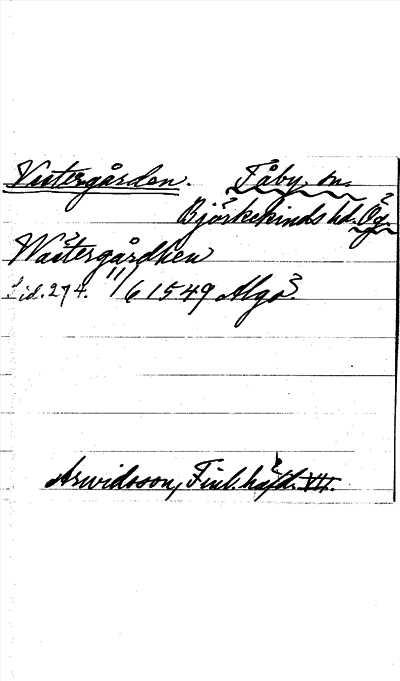 Västergården. Tåby sn.
Björkekinds hd. Ög.
Wästergårdhen
Sid. 274. 11/6 1549 Algö.
Arwidsson, Finl. häfd. VII.